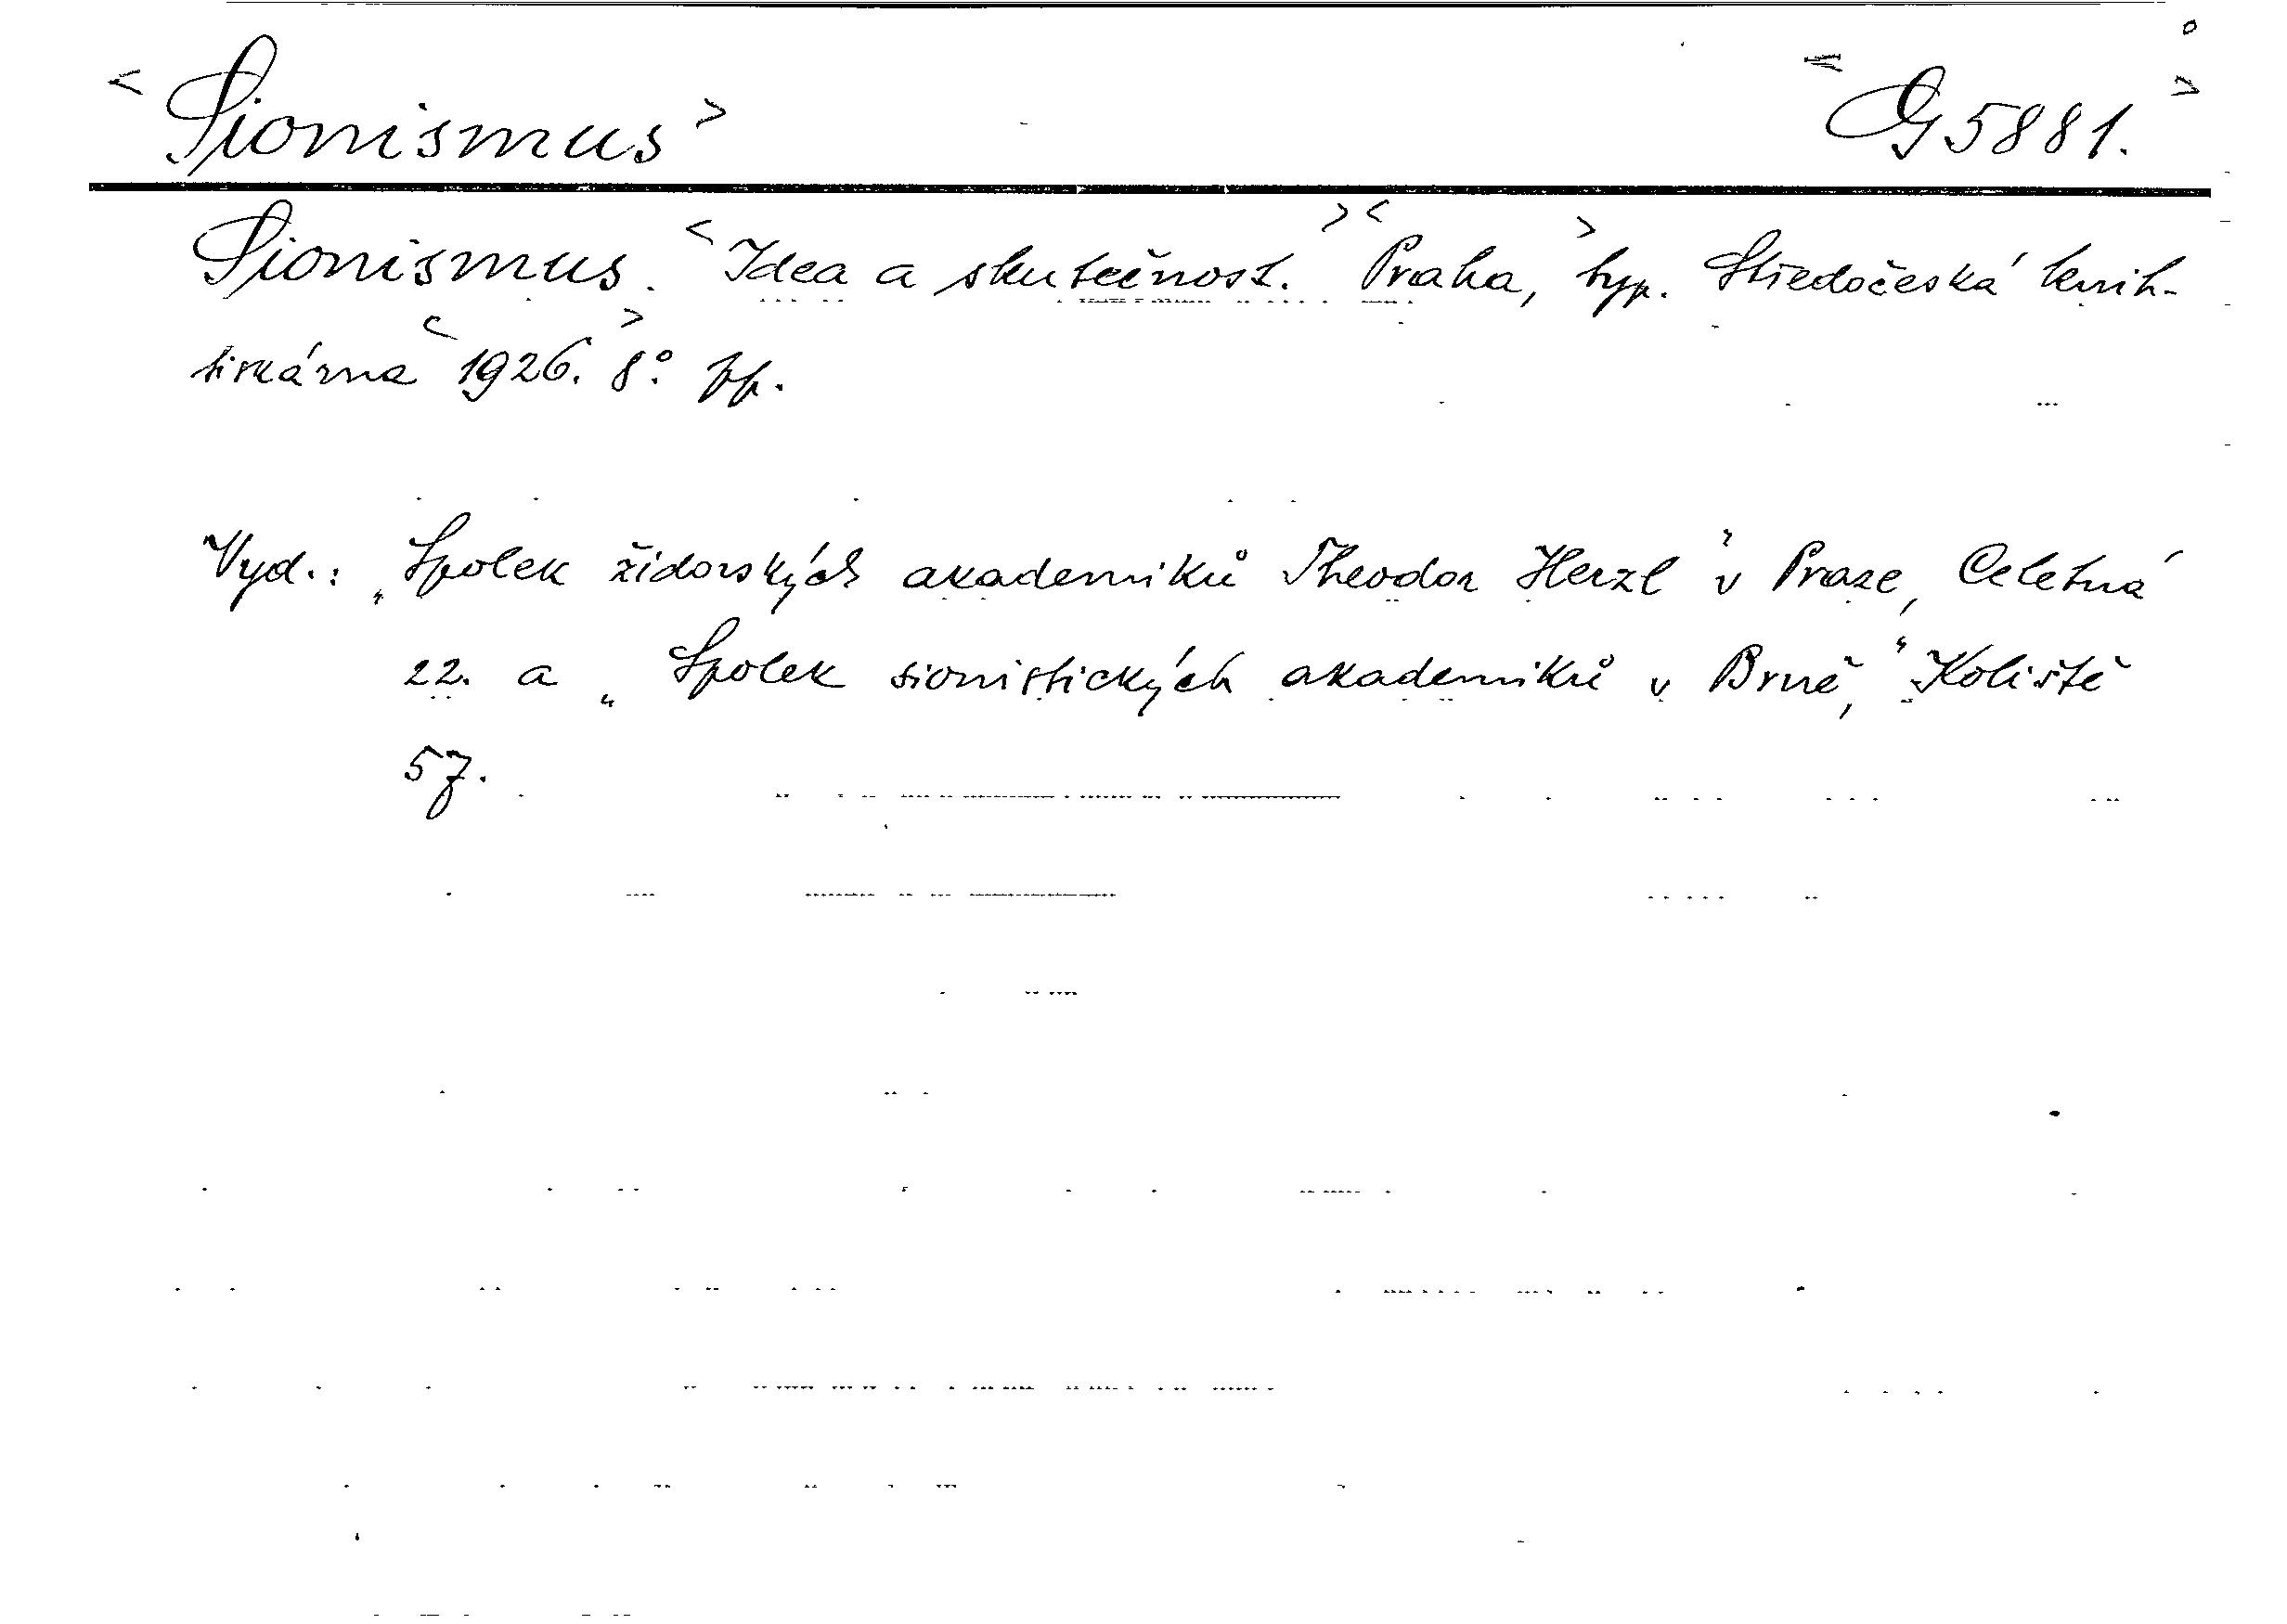 <Sionismus> <G 5881.>
Sionismus. <Idea a skutečnost.> <Praha,> typ. Středočeská knih-
tiskárna <1926.> 8°. pp.
Vyd.: „Spolek židovských akademiků Theodor Herzl" v Praze, Celetná
22. a „Spolek sionistických akademiků v Brně," Koliště
57.